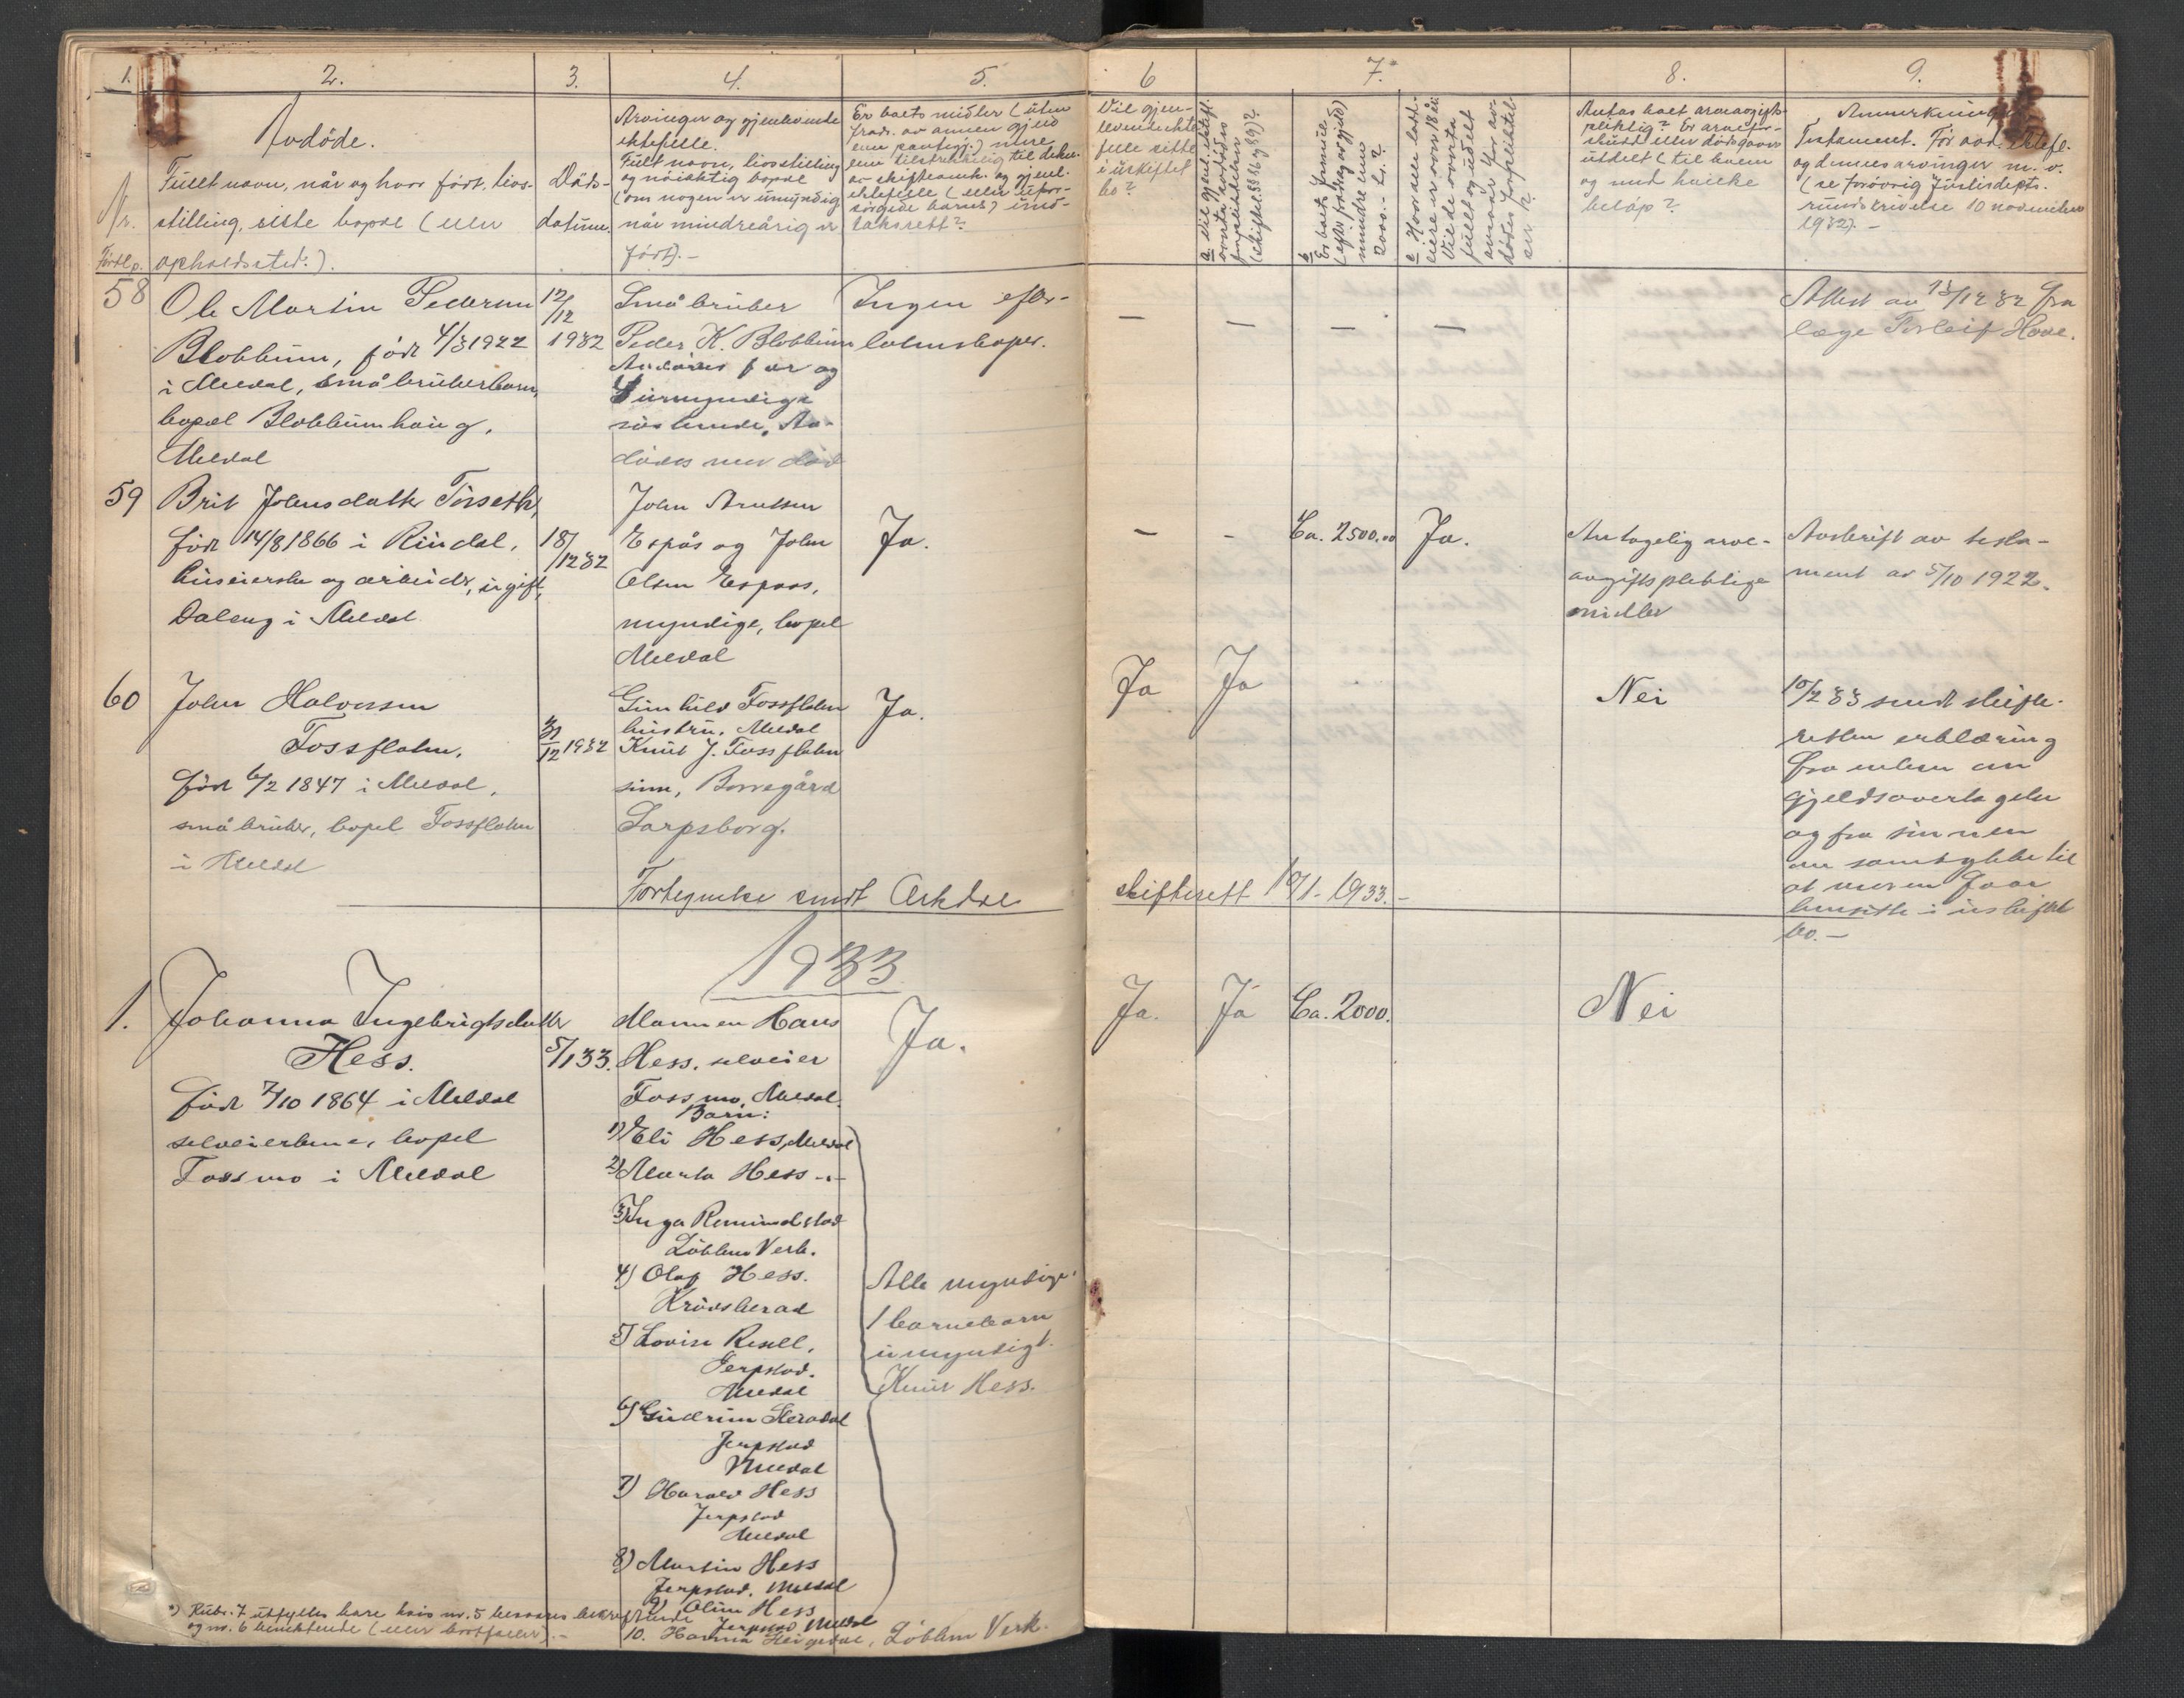 1.
2.
3.
4.
5.
6
7.*
8.
9.
Nr.
Fortl.
Avdöde.
Fullt navn, når og hvor født, livs-
stilling, siste bopæl (eller
opholdssted.).
Døds-
datum.
Arvinger og gjenlevende
ektefelle.
Fullt navn, livsstilling
og nøiaktig bopæl
(om nogen er umyndig
når mindreårig er
født). -
Er boets midler (uten
fradr. av annen gjeld
enn pantegj.) mere
enn tilstrekkelig til dekn.
av skifteomk. og gjenl.
ektefelle (eller ufor-
sörgede barns) und-
taksrett?
Vil gjen-
levende ekte
felle sitte
i uskiftet
bo?
a. Vil gjenl. ektef.
overta avdödes
forpliktelser
(skiftel. §§ 86 og 89)?
b
Er boets formue
(efter fradrag av gjeld)
mindre enn
2000.- kr.?
c. Hvor alle lodd-
eiere er over 18 år:
Vil de overta
fullt og udelt
ansvar for av-
dödes forpliktel-
ser?
Antas boet arveavgifts-
pliktig? Er arvefor-
skudd eller dödsgaver
utdelt (til hvem
og med hvilke
beløp?
Anmerkninger
Testament. För avd. ektef.
og dennes arvinger m. v.
(se forövrig Justisdepts.
rundskrivelse 10 november
1932). -
58
Ole Martin Pedersen
Blokkum, född 4/3 1922
i Meldal, småbrukerbarn,
bopæl Blokkumhaug,
Meldal
12/12
1932
Småbruker
Peder K. Blokkum
Avdödes far og
umyndige
söskende. Av-
dödes mor död
Ingen efter-
latenskaper.
—
—
—
—
Attest av 13/12 32 fra
læge Torleif Hove.
59
Brit Johnsdatter Torseth,
född 14/8 1866 i Rindal,
huseierske og arbeider, ugift,
Daleng i Meldal
18/12 32
John Arntsen
Espås og John
Olsen Espaas,
myndige, bopæl
Meldal
Ja.
—
-
Ca. 2500.00
Ja.
Antagelig arve-
avgiftspliktige
midler
Avskrift av testa-
ment av 5/10 1922.
60
John Halvorsen
Fossflaten,
född 6/2 1847 i Meldal,
småbruker, bopæl Fossflaten
i Meldal
31/12 1932
Gunhild Fossflaten
hustru, Meldal
Knut J. Fossflaten
sönn, Borregård
Sarpsborg.
Ja.
Ja
Ja
Nei
10/2 33 sendt skifte-
retten erklæring
fra enken om
gjeldsovertagelse
og fra sönnen
om samtykke til
at moren faar
hensitte i uskiftet
bo. —
Fortegnelse sendt Orkdal
skifterett 10/1 - 1933.-
1933
1.
Johanna Ingebrigtsdatter
Hess.
född 7/10 1864 i Meldal
selveierkone, bopæl
Fossmo i Meldal
5/1 33.
Mannen Hans
Hess, selveier
Fossmo, Meldal.
Barn:
1) Eli Hess, Meldal
2) Marta Hess -"-
3) Inga Rommelstad
Lökken Verk.
4) Olaf Hess.
Krödsherad
5) Lovise Resell,
Jerpstad.
Meldal
6) Gudrun
Jerpstad
Meldal
7) Harald Hess
Jerpstad
Meldal
8) Martin Hess
Jerpstad. Meldal
9) Oline Hess
Jerpstad Meldal
10. Hanna, Lökken Verk.
Ja.
Alle myndige
1 barnebarn
umyndigt.
Knut Hess.
Ja.
Ja
Ca. 2000.
Nei
*) Rubr. 7 utfylles bare hvis nr. 5 besvares bekreftende
og nr. 6 benektende (eller bortfaller). -